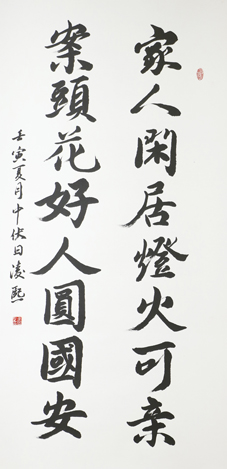 家人閑居燈火可亲
案頭花好人圓國安
壬寅夏月中伏日凌熙